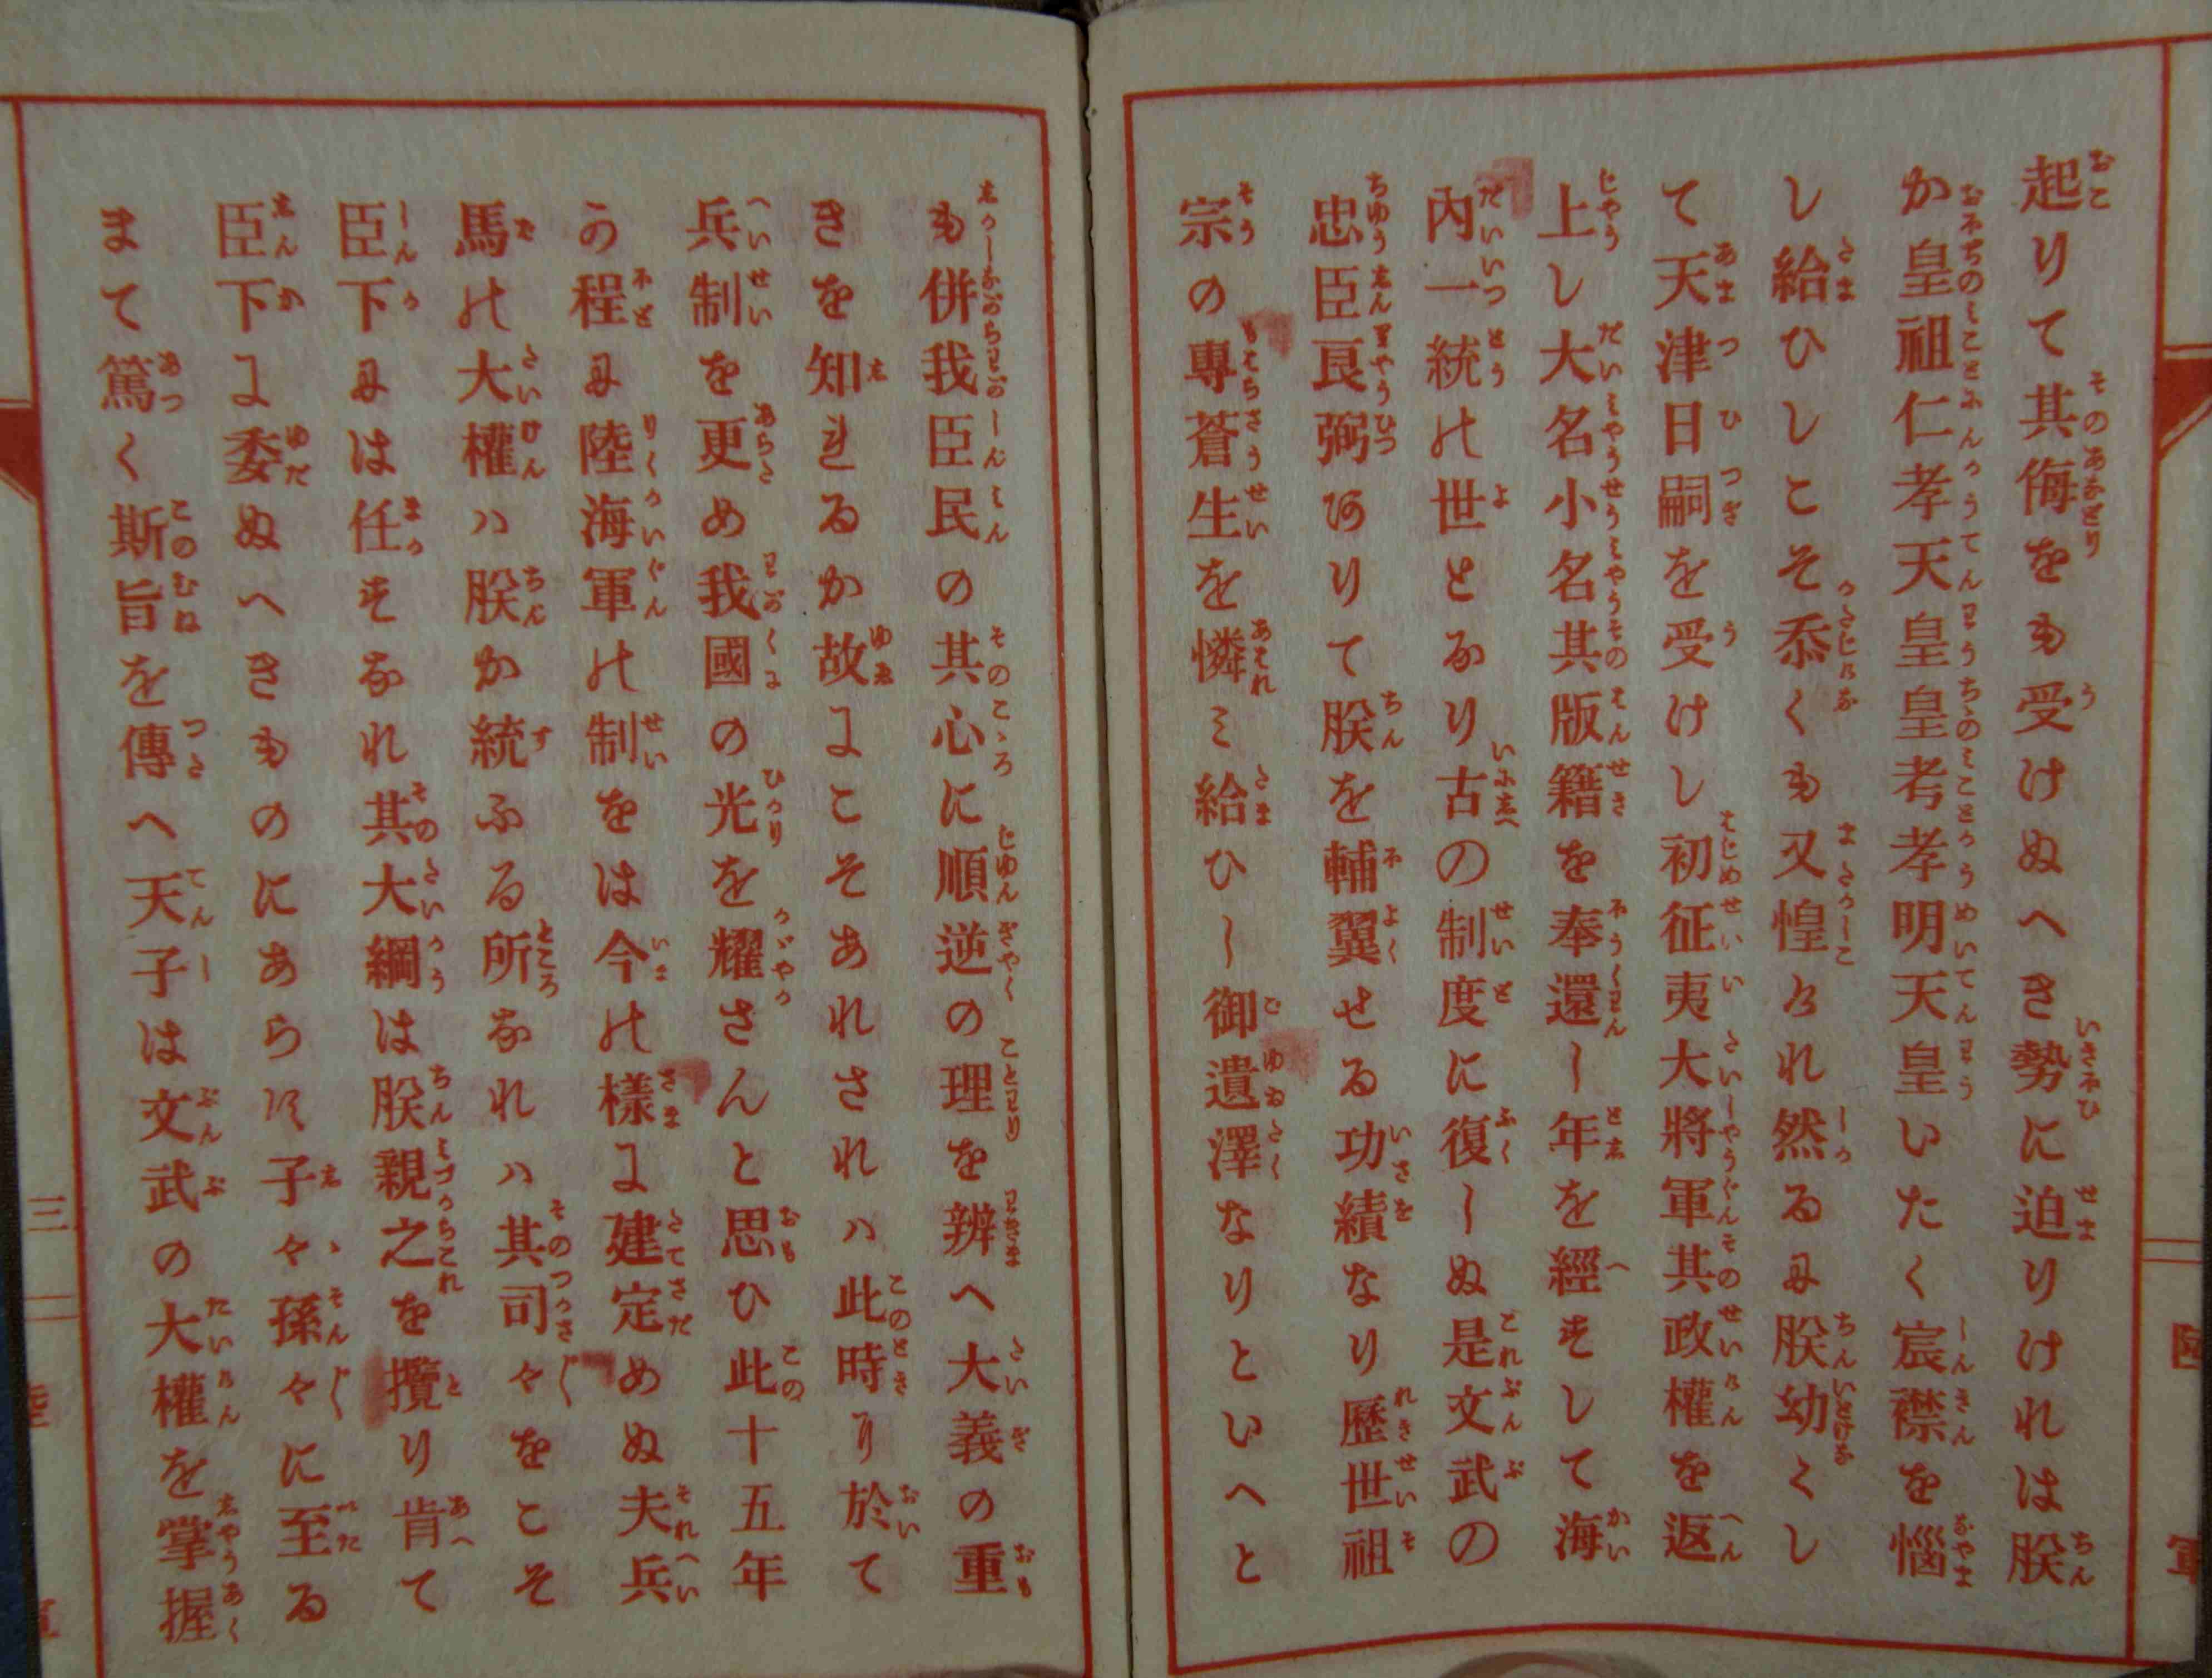 起りて其侮をも受けぬへき勢に迫りけれは朕
か皇祖仁孝天皇皇考孝明天皇いたく宸襟を惱
し給ひしこそ忝くも又惶けれ然るに朕幼くし
て天津日嗣を受けし初征夷大將軍其政權を返
上し大名小名其版籍を奉還し年を經すして海
內一統の世となり古の制度に復しぬ是文武の
忠臣良弼ありて朕を輔翼せる功績なり歷世祖
宗の專蒼生を憐み給ひし御遺澤なりといへと
も併我臣民の其心に順逆の理を辨へ大義の重
きを知れるか故にこそあれされは此時に於て
兵制を更め我國の光を耀さんと思ひ此十五年
か程に陸海軍の制をは今の樣に建定めぬ夫兵
馬の大權は朕か統ふる所なれは其司々をこそ
臣下には任すなれ其大綱は朕親之を攬り肯て
臣下に委ぬへきものにあらす子々孫々に至る
まて篤く斯旨を傳へ天子は文武の大權を掌握
三
陸
軍